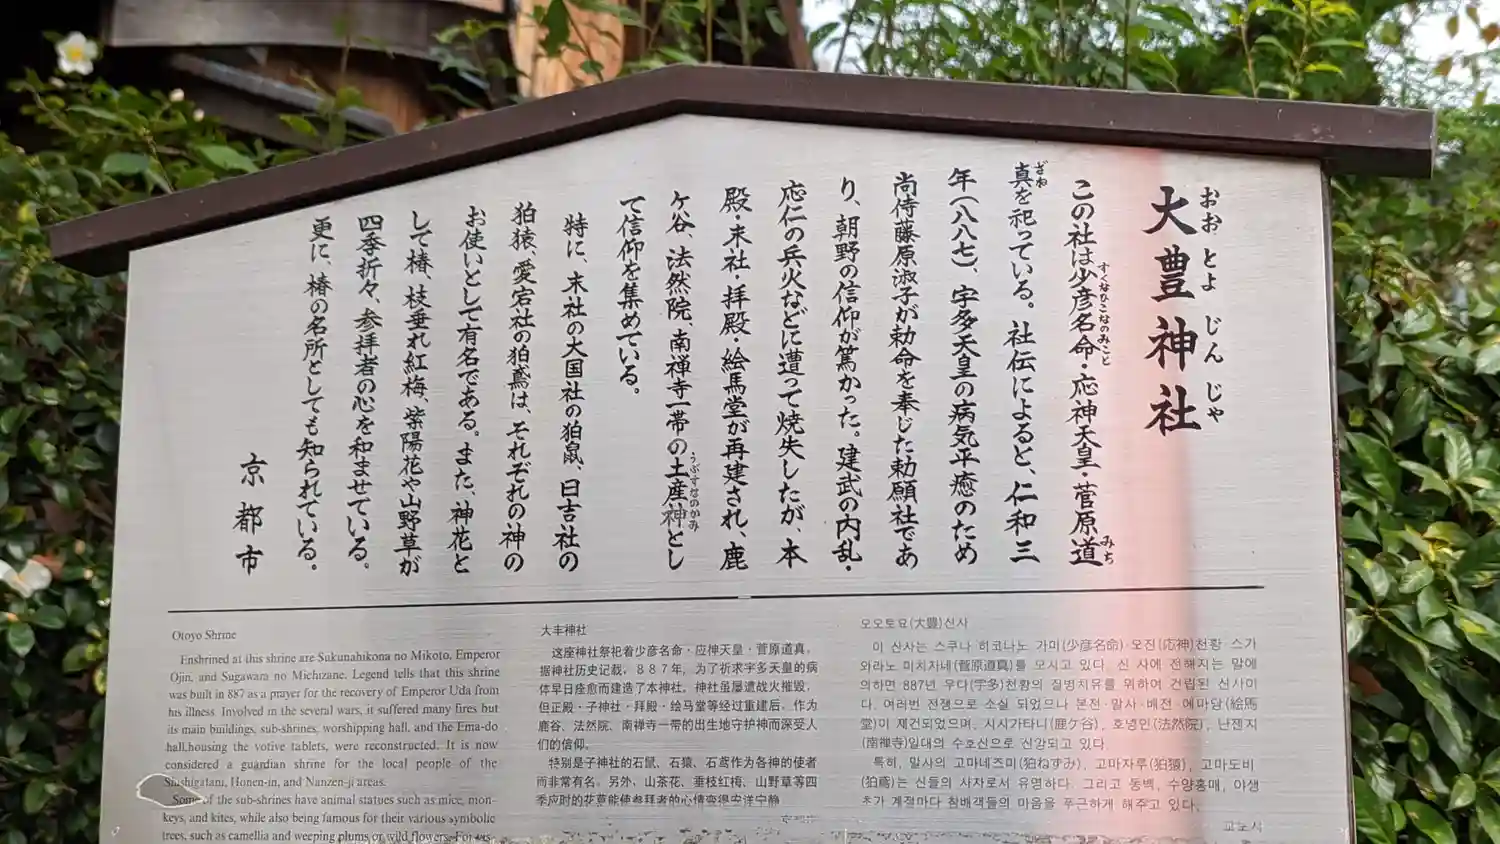 大豊神社
おおとよじんじゃ
この社は少彦名命・応神天皇・菅原道
すくなひこなのみこと
みち
真を祀っている。社伝によると、仁和三
ざね
年(八八七)、宇多天皇の病気平癒のため
尚侍藤原淑子が勅命を奉じた勅願社であ
り、朝野の信仰が篤かった。建武の内乱・
応仁の兵火などに遭って焼失したが、本
殿・末社・拝殿・絵馬堂が再建され、鹿
ケ谷、法然院、南禅寺一帯の土産神とし
うぶすなのかみ
て信仰を集めている。
特に、末社の大国社の狛鼠、日吉社の
狛猿、愛宕社の狛鳶は、それぞれの神の
お使いとして有名である。また、神花と
して椿、枝垂れ紅梅、紫陽花や山野草が
四季折々、参拝者の心を和ませている。
更に、椿の名所としても知られている。
京都市
Otoyo Shrine
Enshrined at this shrine are Sukunahikona no Mikoto, Emperor
Ojin, and Sugawara no Michizane. Legend tells that this shrine
was built in 887 as a prayer for the recovery of Emperor Uda from
his illness. Involved in the several wars, it suffered many fires but
its main buildings, sub-shrines, worshipping hall, and the Ema-do
hall,housing the votive tablets, were reconstructed. It is now
considered a guardian shrine for the local people of the
Shishigatani, Honen-in, and Nanzen-ji areas.
Some of the sub-shrines have animal statues such as mice, mon-
keys, and kites, while also being famous for their various symbolic
trees, such as camellia and weeping plums or wild flowers. For
大丰神社
这座神社祭祀着少彦名命・应神天皇・菅原道真。
据神社历史记载，887年，为了祈求宇多天皇的病
体早日痊愈而建造了本神社。神社虽屡遭战火摧毁，
但正殿・子神社・拜殿・绘马堂等经过重建后，作为
鹿谷、法然院、南禅寺一带的出生地守护神而深受人
们的信仰。
特别是子神社的石鼠、石猿、石鸢作为各神的使者
而非常有名。另外，山茶花、垂枝红梅、山野草等四
季应时的花草能使参拜者的心情变得安详宁静。
京都市
오오토요(大豊)신사
이 신사는 스쿠나 히코나노 가미(少彦名命)·오진(応神)천황·스가
와라노 미치자네(菅原道真)를 모시고 있다. 신 사에 전해지는 말에
의하면 887년 우다(宇多)천황의 질병치유를 위하여 건립된 신사이
다. 여러번 전쟁으로 소실 되었으나 본전·말사·배전·에마당(絵馬
堂)이 재건되었으며, 시시가타니(鹿ケ谷), 호넹인(法然院), 난젠지
(南禅寺)일대의 수호신으로 신앙되고 있다.
특히, 말사의 고마네즈미(狛ねずみ), 고마자루(狛猿), 고마도비
(狛鳶)는 신들의 사자로서 유명하다. 그리고 동백, 수양홍매, 야생
초가 계절마다 참배객들의 마음을 푸근하게 해주고 있다.
교토시